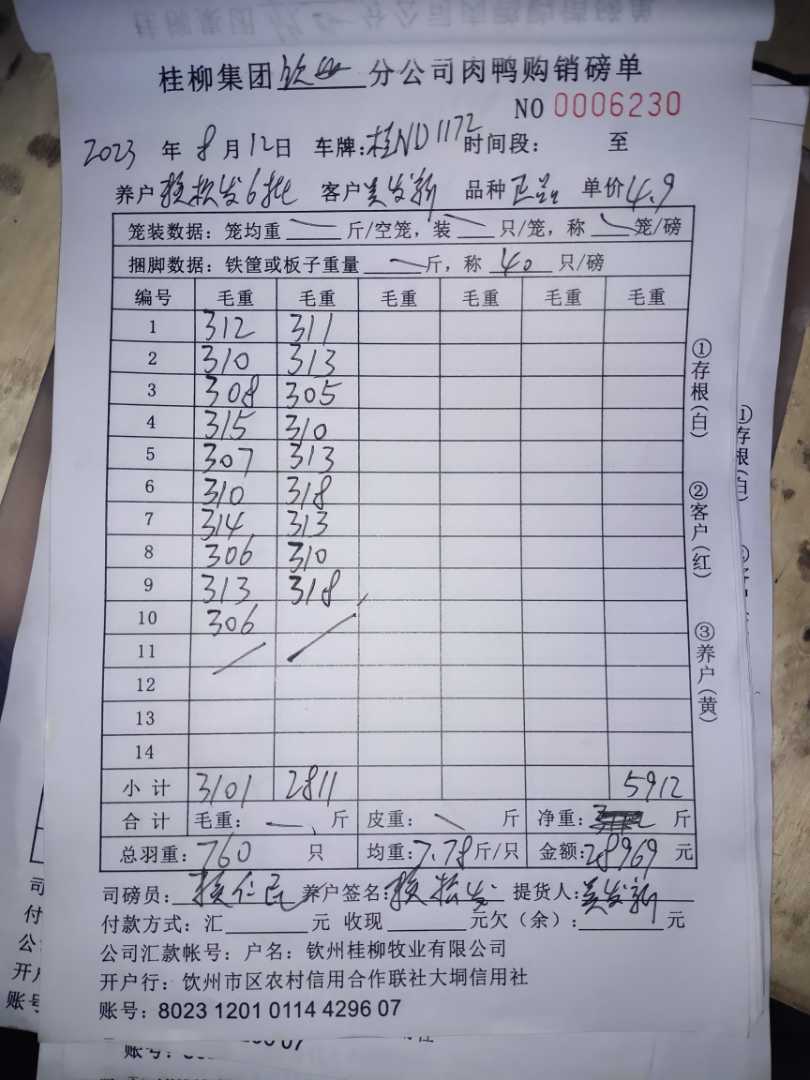 桂柳集团钦州分公司肉鸭购销磅单
NO 0006230
2023 年 8 月 12 日 车牌:桂ND1172 时间段: 至
养户 松发6批 客户 发新 品种 正品 单价 4.9
笼装数据: 笼均重 斤/空笼, 装 只/笼, 称 笼/磅
捆脚数据: 铁筐或板子重量 斤, 称 40 只/磅
编号 毛重 毛重 毛重 毛重 毛重 毛重
1 312 311
2 310 313
3 308 305
4 315 310
5 307 313
6 310 318
7 314 313
8 306 310
9 313 318
10 306
11
12
13
14
小计 3101 2811 5912
合计 毛重: 斤 皮重: 斤 净重: 斤
总羽重: 760 只 均重: 7.78 斤/只 金额: 28969 元
司磅员: 仁 养户签名: 松发 提货人: 发新
付款方式: 汇 元 收现 元 欠(余): 元
公司汇款帐号: 户名: 钦州桂柳牧业有限公司
开户行: 钦州市区农村信用合作联社大垌信用社
账号: 8023 1201 0114 4296 07
①存根(白)
②客户(红)
③养户(黄)